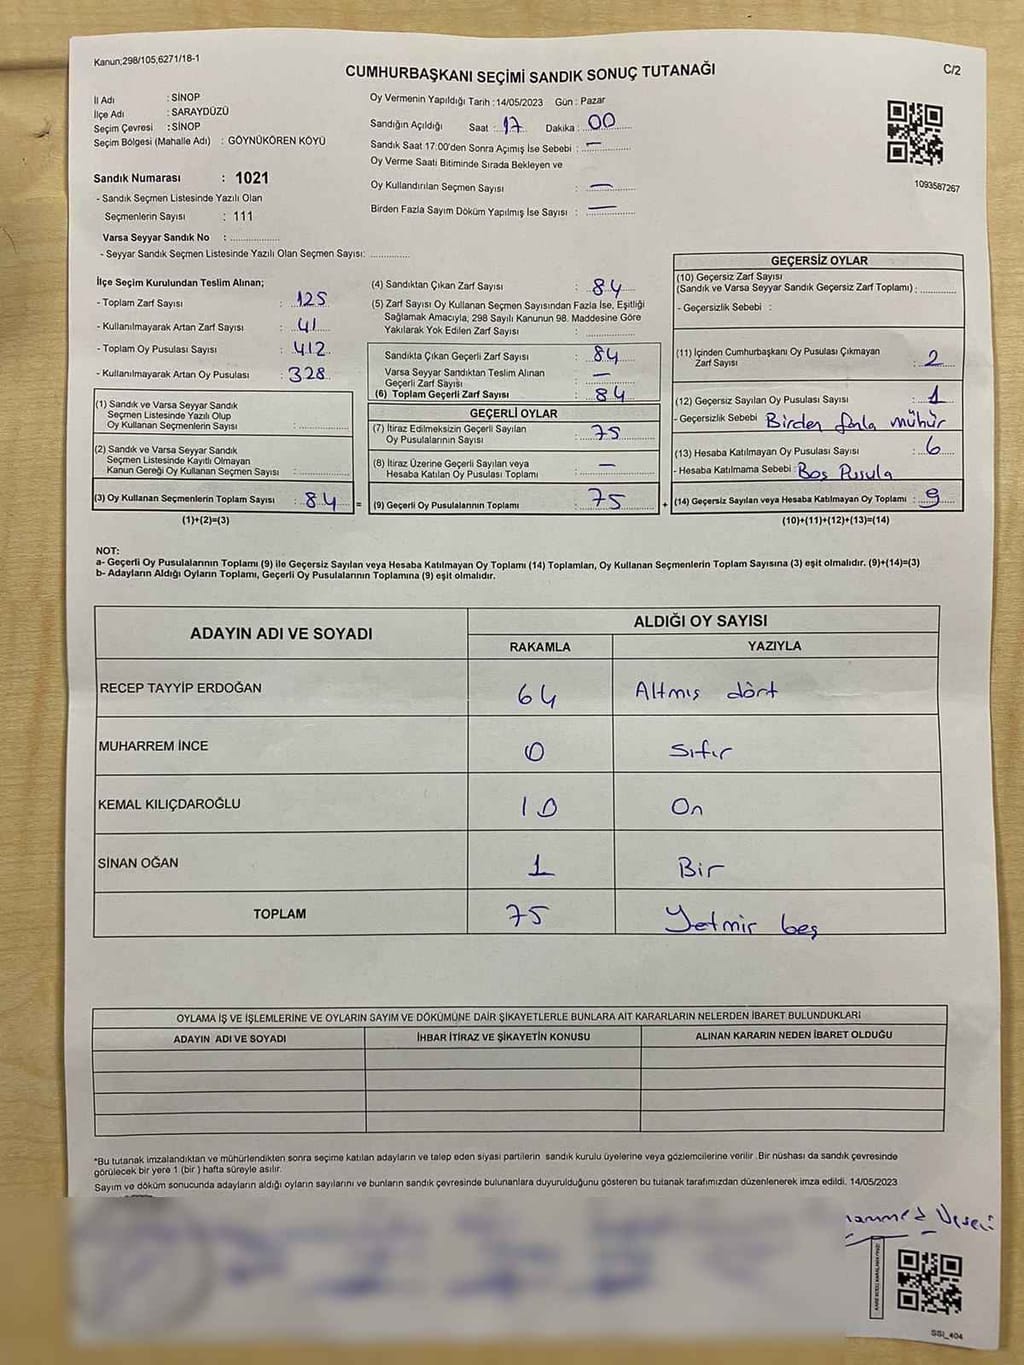 Kanun;298/105,6271/18-1
CUMHURBAŞKANI SEÇİMİ SANDIK SONUÇ TUTANAĞI
C/2
İl Adı : SİNOP
İlçe Adı : SARAYDÜZÜ
Seçim Çevresi : SİNOP
Seçim Bölgesi (Mahalle Adı) : GÖYNÜKÖREN KÖYÜ
Sandık Numarası : 1021
- Sandık Seçmen Listesinde Yazılı Olan
Seçmenlerin Sayısı : 111
Varsa Seyyar Sandık No :
- Seyyar Sandık Seçmen Listesinde Yazılı Olan Seçmen Sayısı:
Oy Vermenin Yapıldığı Tarih : 14/05/2023 Gün : Pazar
Sandığın Açıldığı Saat : 17 Dakika : 00
Sandık Saat 17:00'den Sonra Açımış İse Sebebi : —
Oy Verme Saati Bitiminde Sırada Bekleyen ve
Oy Kullandırılan Seçmen Sayısı : —
Birden Fazla Sayım Döküm Yapılmış İse Sayısı : —
1093587267
İlçe Seçim Kurulundan Teslim Alınan;
- Toplam Zarf Sayısı : 125
- Kullanılmayarak Artan Zarf Sayısı : 41
- Toplam Oy Pusulası Sayısı : 412
- Kullanılmayarak Artan Oy Pusulası : 328
(1) Sandık ve Varsa Seyyar Sandık
Seçmen Listesinde Yazılı Olup
Oy Kullanan Seçmenlerin Sayısı :
(2) Sandık ve Varsa Seyyar Sandık
Seçmen Listesinde Kayıtlı Olmayan
Kanun Gereği Oy Kullanan Seçmen Sayısı :
(3) Oy Kullanan Seçmenlerin Toplam Sayısı : 84 =
(1)+(2)=(3)
(4) Sandıktan Çıkan Zarf Sayısı : 84
(5) Zarf Sayısı Oy Kullanan Seçmen Sayısından Fazla İse, Eşitliği
Sağlamak Amacıyla, 298 Sayılı Kanunun 98. Maddesine Göre
Yakılarak Yok Edilen Zarf Sayısı :
Sandıkta Çıkan Geçerli Zarf Sayısı : 84
Varsa Seyyar Sandıktan Teslim Alınan
Geçerli Zarf Sayısı : —
(6) Toplam Geçerli Zarf Sayısı : 84
GEÇERLİ OYLAR
(7) İtiraz Edilmeksizin Geçerli Sayılan
Oy Pusulalarının Sayısı : 75
(8) İtiraz Üzerine Geçerli Sayılan veya
Hesaba Katılan Oy Pusulası Toplamı : —
(9) Geçerli Oy Pusulalarının Toplamı : 75 +
GEÇERSİZ OYLAR
(10) Geçersiz Zarf Sayısı
(Sandık ve Varsa Seyyar Sandık Geçersiz Zarf Toplamı) :
- Geçersizlik Sebebi :
(11) İçinden Cumhurbaşkanı Oy Pusulası Çıkmayan
Zarf Sayısı : 2
(12) Geçersiz Sayılan Oy Pusulası Sayısı : 1
- Geçersizlik Sebebi : Birden fazla mühür
(13) Hesaba Katılmayan Oy Pusulası Sayısı : 6
- Hesaba Katılmama Sebebi : Boş Pusula
(14) Geçersiz Sayılan veya Hesaba Katılmayan Oy Toplamı : 9
(10)+(11)+(12)+(13)=(14)
NOT:
a- Geçerli Oy Pusulalarının Toplamı (9) ile Geçersiz Sayılan veya Hesaba Katılmayan Oy Toplamı (14) Toplamları, Oy Kullanan Seçmenlerin Toplam Sayısına (3) eşit olmalıdır. (9)+(14)=(3)
b- Adayların Aldığı Oyların Toplamı, Geçerli Oy Pusulalarının Toplamına (9) eşit olmalıdır.
ADAYIN ADI VE SOYADI ALDIĞI OY SAYISI
RAKAMLA YAZIYLA
RECEP TAYYİP ERDOĞAN 64 Altmış dört
MUHARREM İNCE 0 Sıfır
KEMAL KILIÇDAROĞLU 10 On
SİNAN OĞAN 1 Bir
TOPLAM 75 Yetmiş beş
OYLAMA İŞ VE İŞLEMLERİNE VE OYLARIN SAYIM VE DÖKÜMÜNE DAİR ŞİKAYETLERLE BUNLARA AİT KARARLARIN NELERDEN İBARET BULUNDUKLARI
ADAYIN ADI VE SOYADI İHBAR İTİRAZ VE ŞİKAYETİN KONUSU ALINAN KARARIN NEDEN İBARET OLDUĞU
*Bu tutanak imzalandıktan ve mühürlendikten sonra seçime katılan adayların ve talep eden siyasi partilerin sandık kurulu üyelerine veya gözlemcilerine verilir .Bir nüshası da sandık çevresinde
görülecek bir yere 1 (bir ) hafta süreyle asılır.
Sayım ve döküm sonucunda adayların aldığı oyların sayılarını ve bunların sandık çevresinde bulunanlara duyurulduğunu gösteren bu tutanak tarafımızdan düzenlenerek imza edildi. 14/05/2023
SSI_404